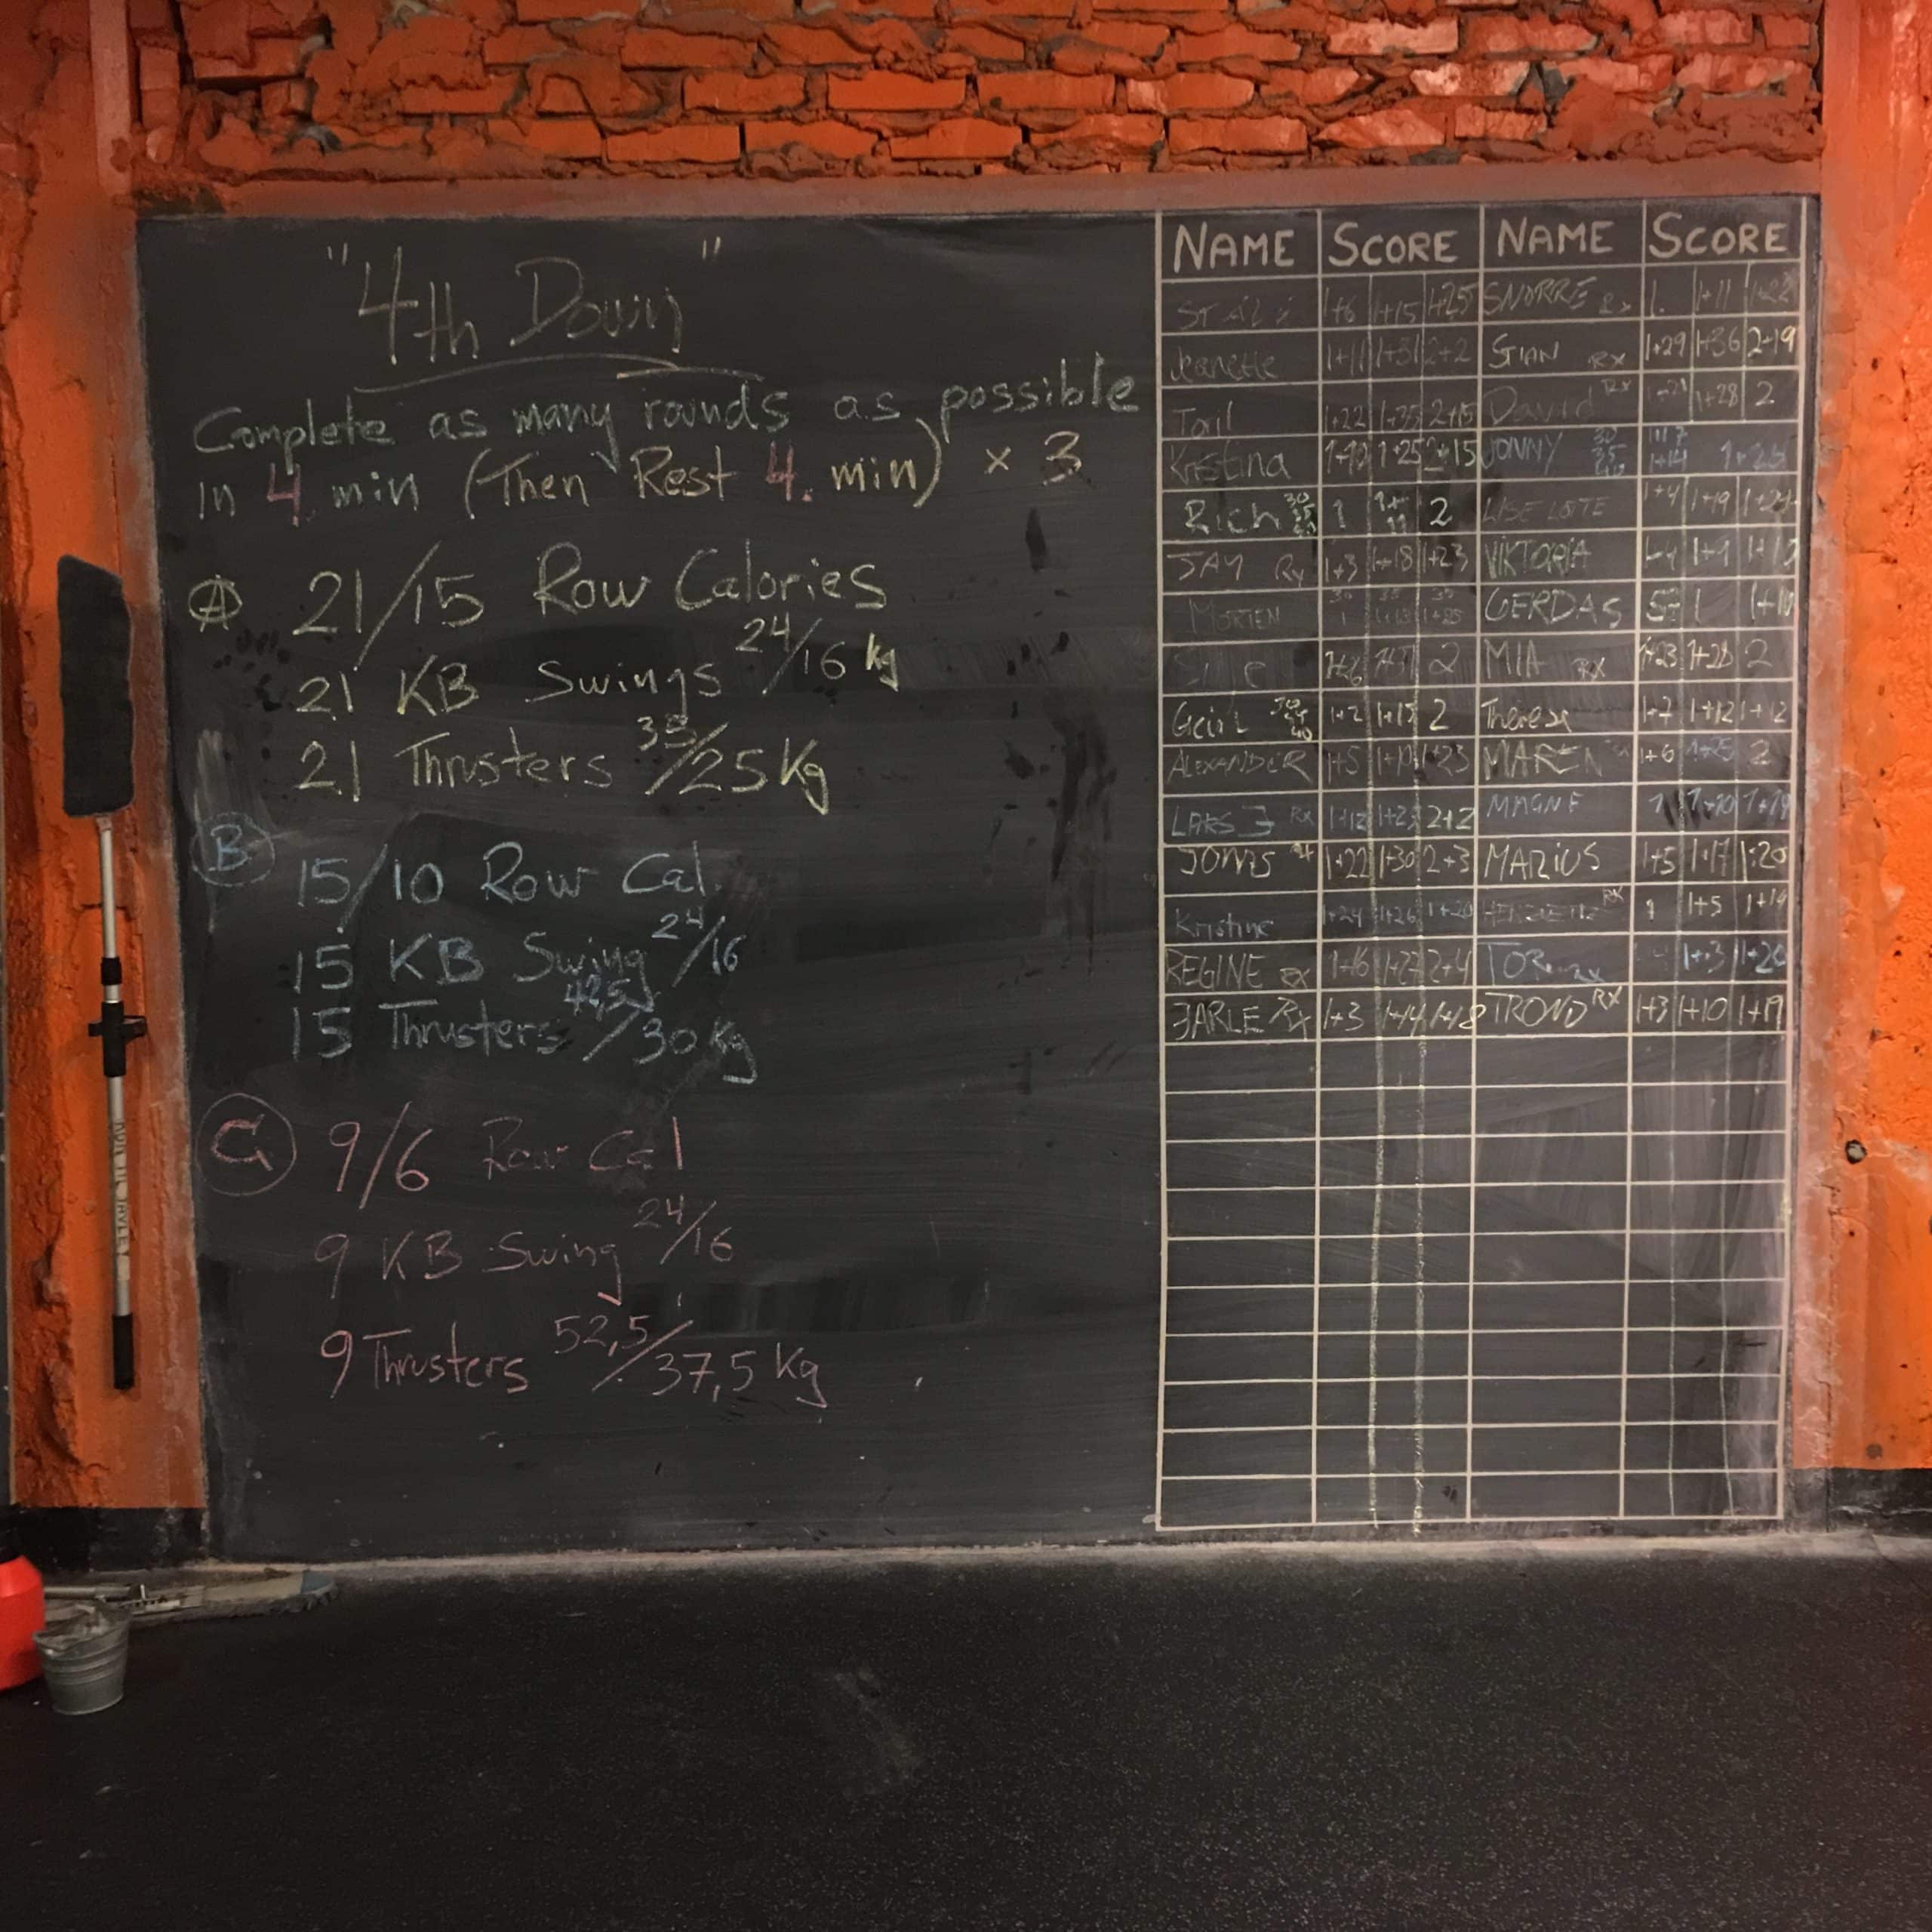 "4th Down"
Complete as many rounds as possible
in 4 min (Then Rest 4. min) x 3
A 21/15 Row Calories
21 KB Swings 24/16 kg
21 Thrusters 35/25 Kg
B 15/10 Row Cal.
15 KB Swing 24/16
15 Thrusters 42,5/30 Kg
C 9/6 Row Cal
9 KB Swing 24/16
9 Thrusters 52,5/37,5 Kg
NAME SCORE NAME SCORE
1+6 1+15 1+25 SNORRE Rx 1. 1+11 1+22
Jeanette 1+11 1+31 2+2 STIAN RX 1+29 1+36 2+19
Toril 1+22 1+35 2+15 David RX 1+28 2
Kristina 1+12 1+25 2+15 JONNY 30 35 40 1+14
Rich 1 1+11 2 LISE LOTTE 1+4 1+19
JAY Rx 1+3 1+18 1+23 VIKTORIA 1+9
MORTEN GERDAS 1
2 MIA RX 1+23 1+28 2
Geir 1+2 2 Therese 1+7 1+12 1+12
ALEXANDER 1+5 1+23 MAREN 1+6 1+25 2
LARS J RX 1+12 1+23 2+2 MAGNE 1 1+10 1+19
1+22 1+30 2+3 MARIUS 1+5 1+17 1+20
Kristine 1+24 1+26 1+20 RX 1 1+5 1+19
REGINE RX 1+16 1+27 2+4 TOR RX 1+3 1+20
JARLE Rx 1+3 1+14 1+18 TROND RX 1+3 1+10 1+19